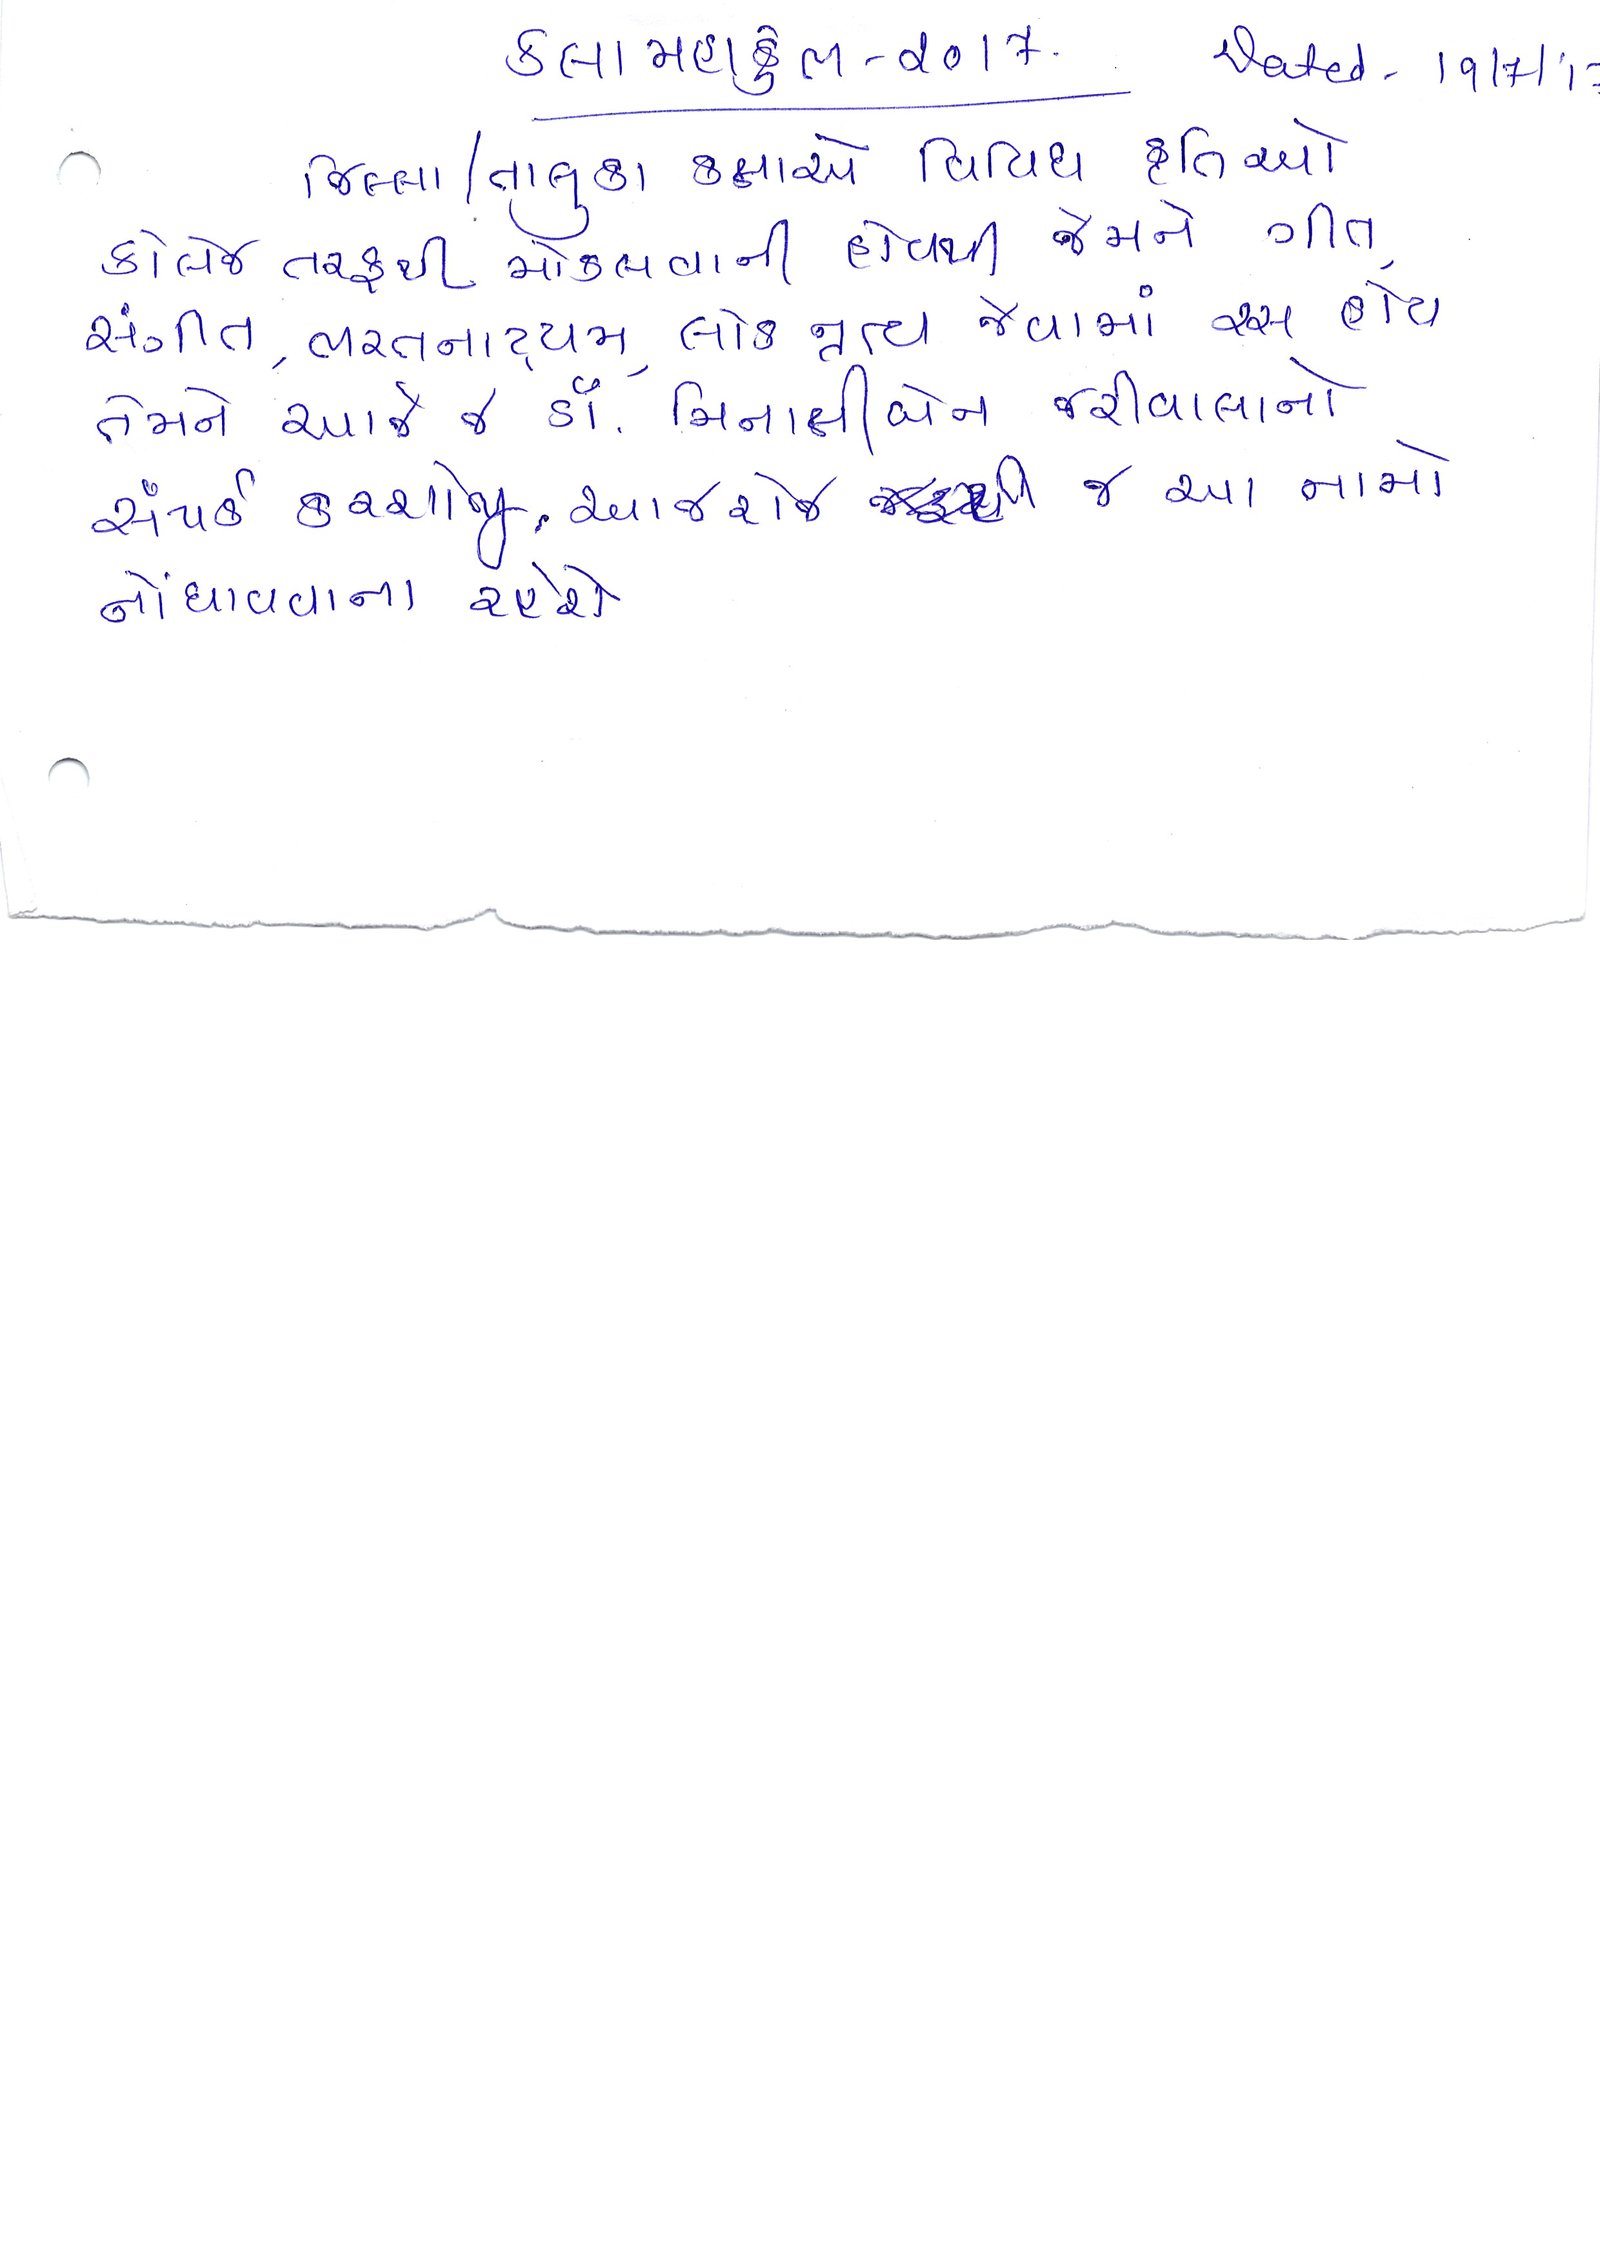 કલા મહાકુંભ - ૨૦17. Dated - 19/7/'17
જિલ્લા/તાલુકા કક્ષાએ વિવિધ કૃતિઓ
કોલેજ તરફથી મોકલવાની હોવાથી જેમને ગીત,
સંગીત, ભરતનાટ્યમ, લોક નૃત્ય જેવામાં રસ હોય
તેમને આજે જ ડૉ. મિનાક્ષીબેન જરીવાલાનો
સંપર્ક કરશોજી. આજરોજ જ આ નામો
નોંધાવવાના રહેશે